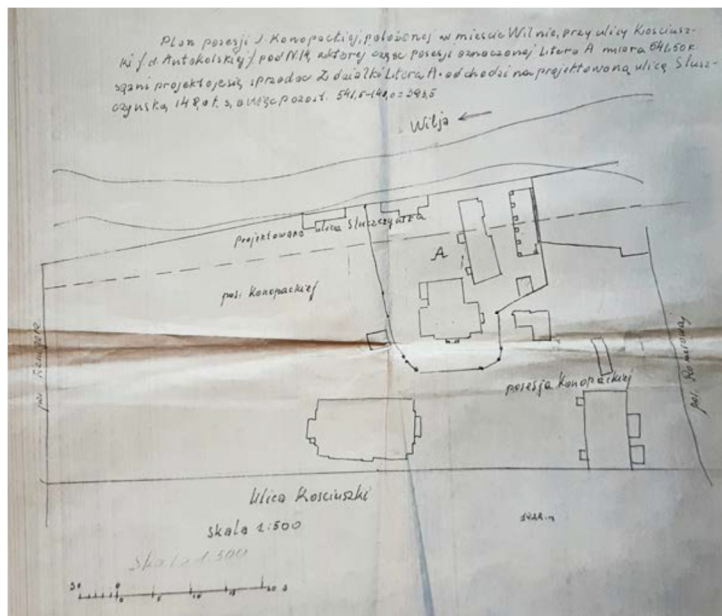 Plan posesji J. Konopackiej, położonej w mieście Wilnie, przy ulicy Kosciusz-
ki /d. Antokolskiej/ pod N14, z ktorej część posesji oznaczonej Litera A miara 541,50 k.
sążni projektuje się sprzedac Z działki Litera A. odchodzi na projektowaną ulicę Slusz-
czyńską 148,0 k. s, a więc pozost. 541,5-148,0=393,5
Wilja
projektowana ulica Słuszczyńska
A
pos. Konopackiej
pos.
posesja Konopackiej
pos.
Ulica Kosciuszki
skala 1:500
Skala 1:500
5 10 15 20 s